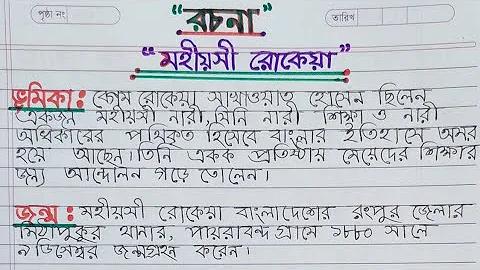 পৃষ্ঠা নং
তারিখ
"রচনা"
"মহীয়সী রোকেয়া"
ভূমিকা: বেগম রোকেয়া সাখাওয়াত হোসেন ছিলেন
একজন মহীয়সী নারী, যিনি নারী শিক্ষা ও নারী
অধিকারের পথিকৃত হিসেবে বাংলার ইতিহাসে অমর
হয়ে আছেন। তিনি একক প্রতিষ্ঠায় মেয়েদের শিক্ষার
জন্য আন্দোলন গড়ে তোলেন।
জন্ম: মহীয়সী রোকেয়া বাংলাদেশের রংপুর জেলার
মিঠাপুকুর থানার, পায়রাবন্দ গ্রামে ১৮৮০ সালে
৯ ডিসেম্বর জন্মগ্রহন করেন।